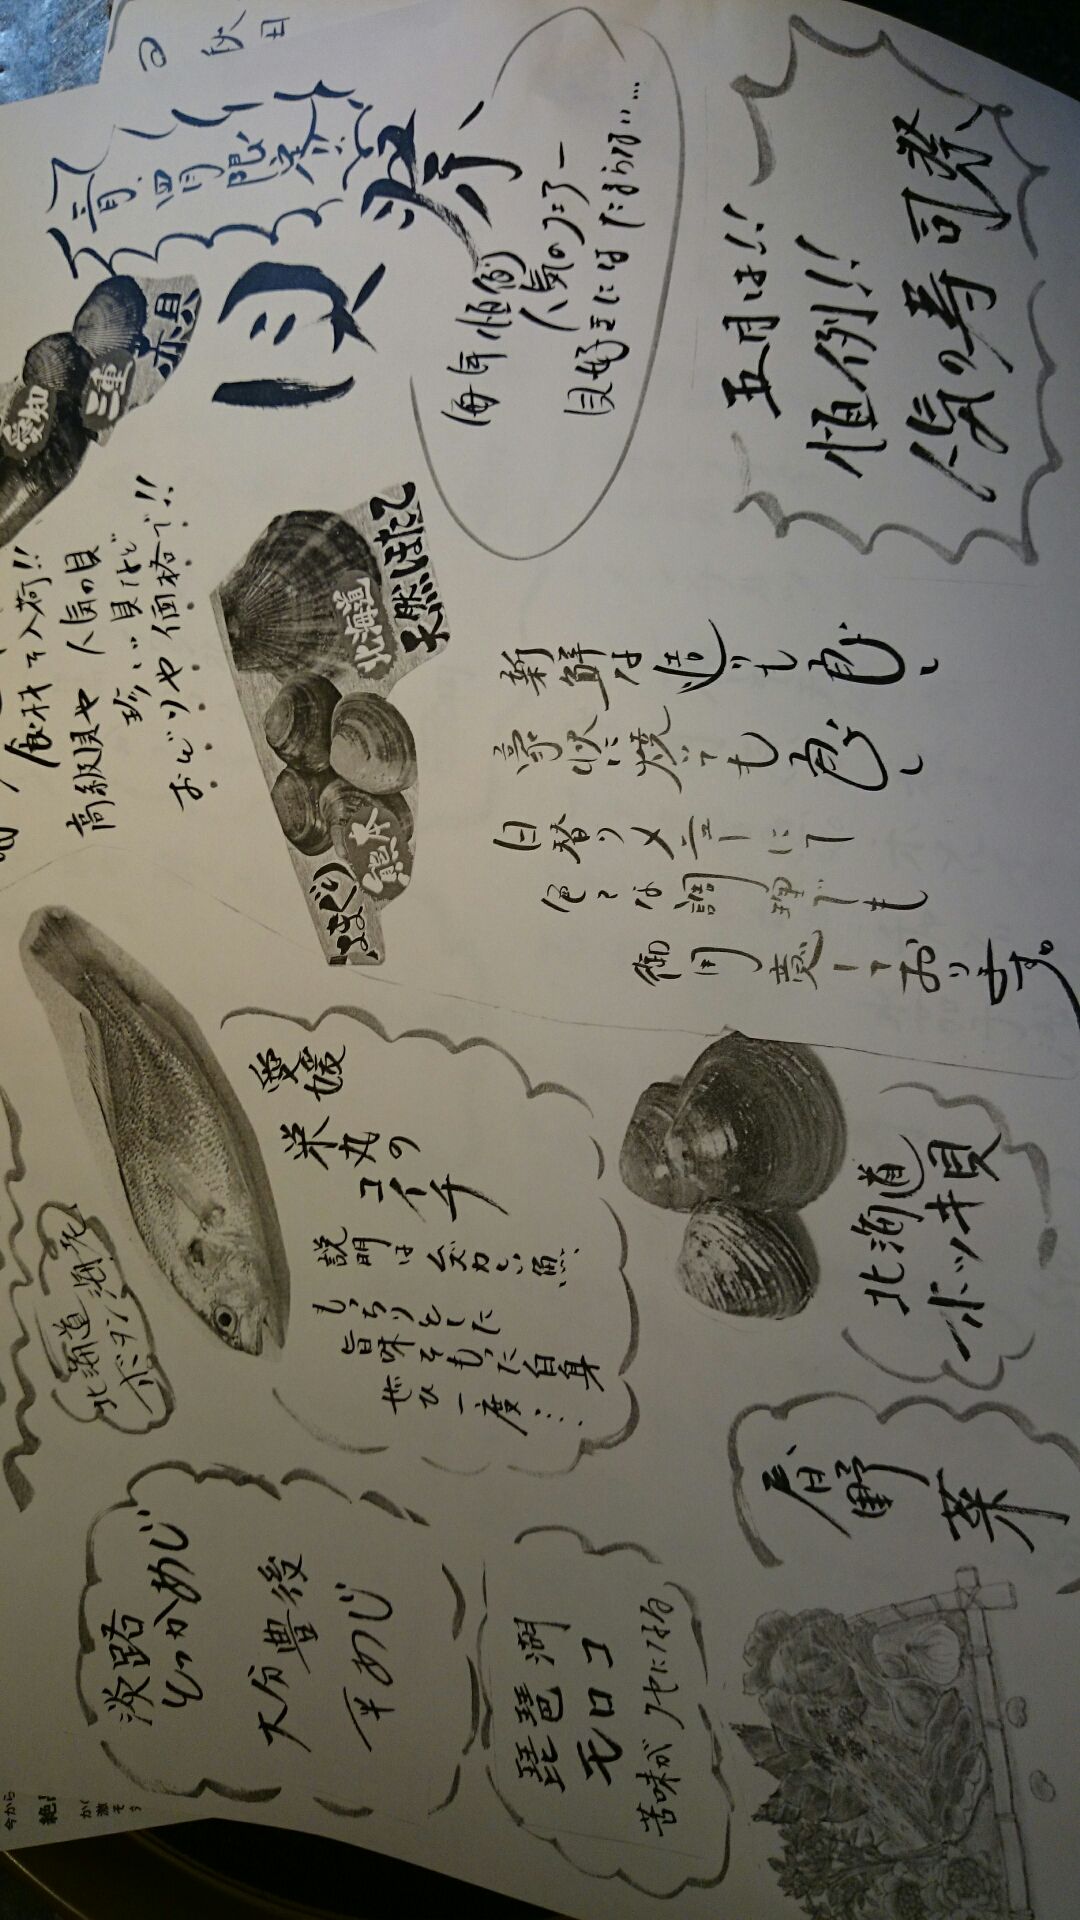 五月は!!
恒例!!
人気の寿司祭
三月、四月限定!!
貝祭り
毎年恒例
人気のフェアー
貝好きにはたまらない…
愛知
三重
赤貝
食材を入荷!!
高級貝や人気の貝
珍しい貝など
おどりや価格で!!
北海道
天然ほたて
熊本
はまぐり
新鮮な造りでも良し
豪快に焼いても良し
日替りメニューにて
色々な調理でも
御用意しております。
愛媛
栄丸の
コイチ
説明はムズカしい魚
もっちりとした
旨味をもった白身
ぜひ一度…
北海道
ホッキ貝
北海道
ボタン海老
春野菜
淡路
とっかめじ
大分豊後
平めじ
琵琶湖
モロコ
苦味がクセになる
今から